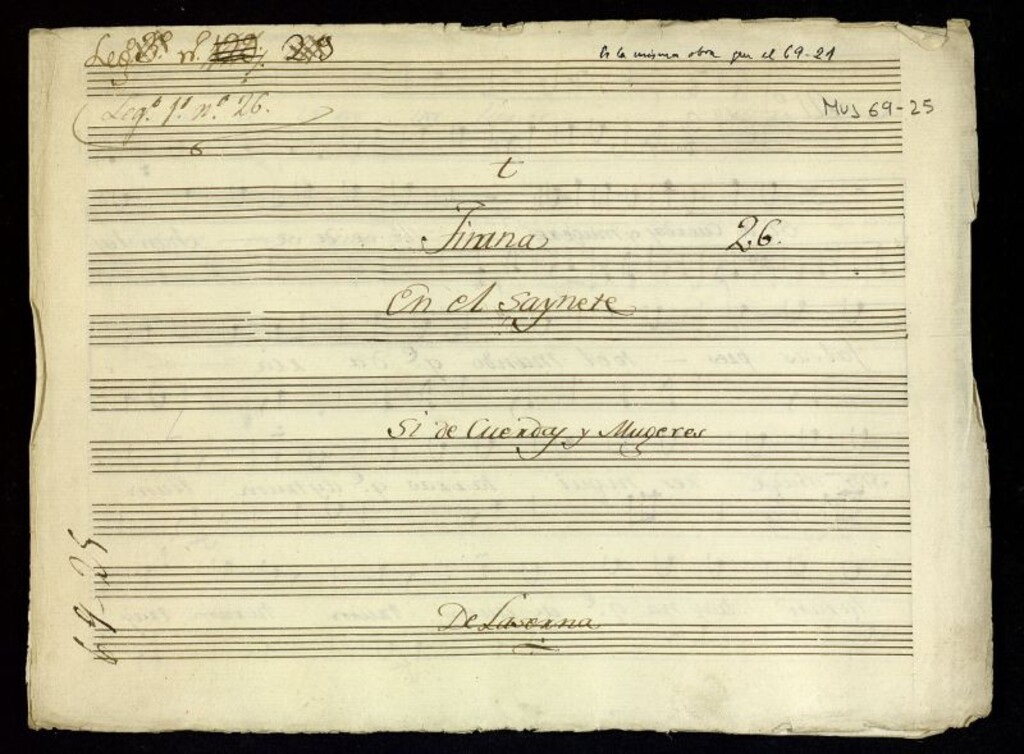 Leg.º nº
Es la misma obra que el 69-21
Leg.º 1º nº 26.
Mus 69-25
6
t
Tirana 26.
En el Saynete
Si de Cuerdas y Mugeres
De Laserna
69-25